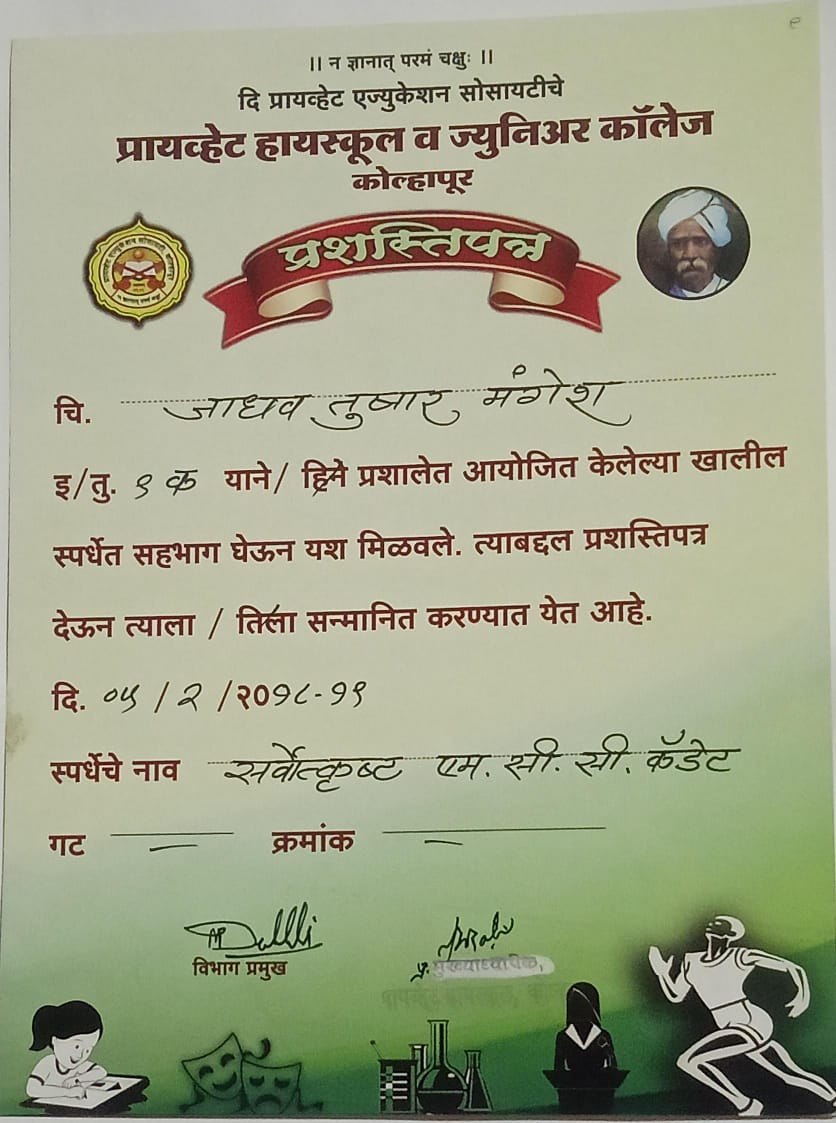 ॥ न ज्ञानात् परमं चक्षुः ॥
दि प्रायव्हेट एज्युकेशन सोसायटीचे
प्रायव्हेट हायस्कूल व ज्युनिअर कॉलेज
कोल्हापूर
प्रशस्तिपत्र
चि. जाधव तुषार मंगेश
इ/तु. ९ क याने/ हिने प्रशालेत आयोजित केलेल्या खालील
स्पर्धेत सहभाग घेऊन यश मिळवले. त्याबद्दल प्रशस्तिपत्र
देऊन त्याला / तिला सन्मानित करण्यात येत आहे.
दि. ०५ / २ / २०१८-१९
स्पर्धेचे नाव सर्वोत्कृष्ट एम. सी. सी. कॅडेट
गट — क्रमांक —
विभाग प्रमुख प्र. मुख्याध्यापक,